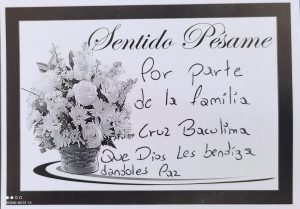 Sentido Pésame
Por parte
de la família
Cruz Baculima
Que Dios Les bendiga
dandoles Paz
REDMI NOTE 10